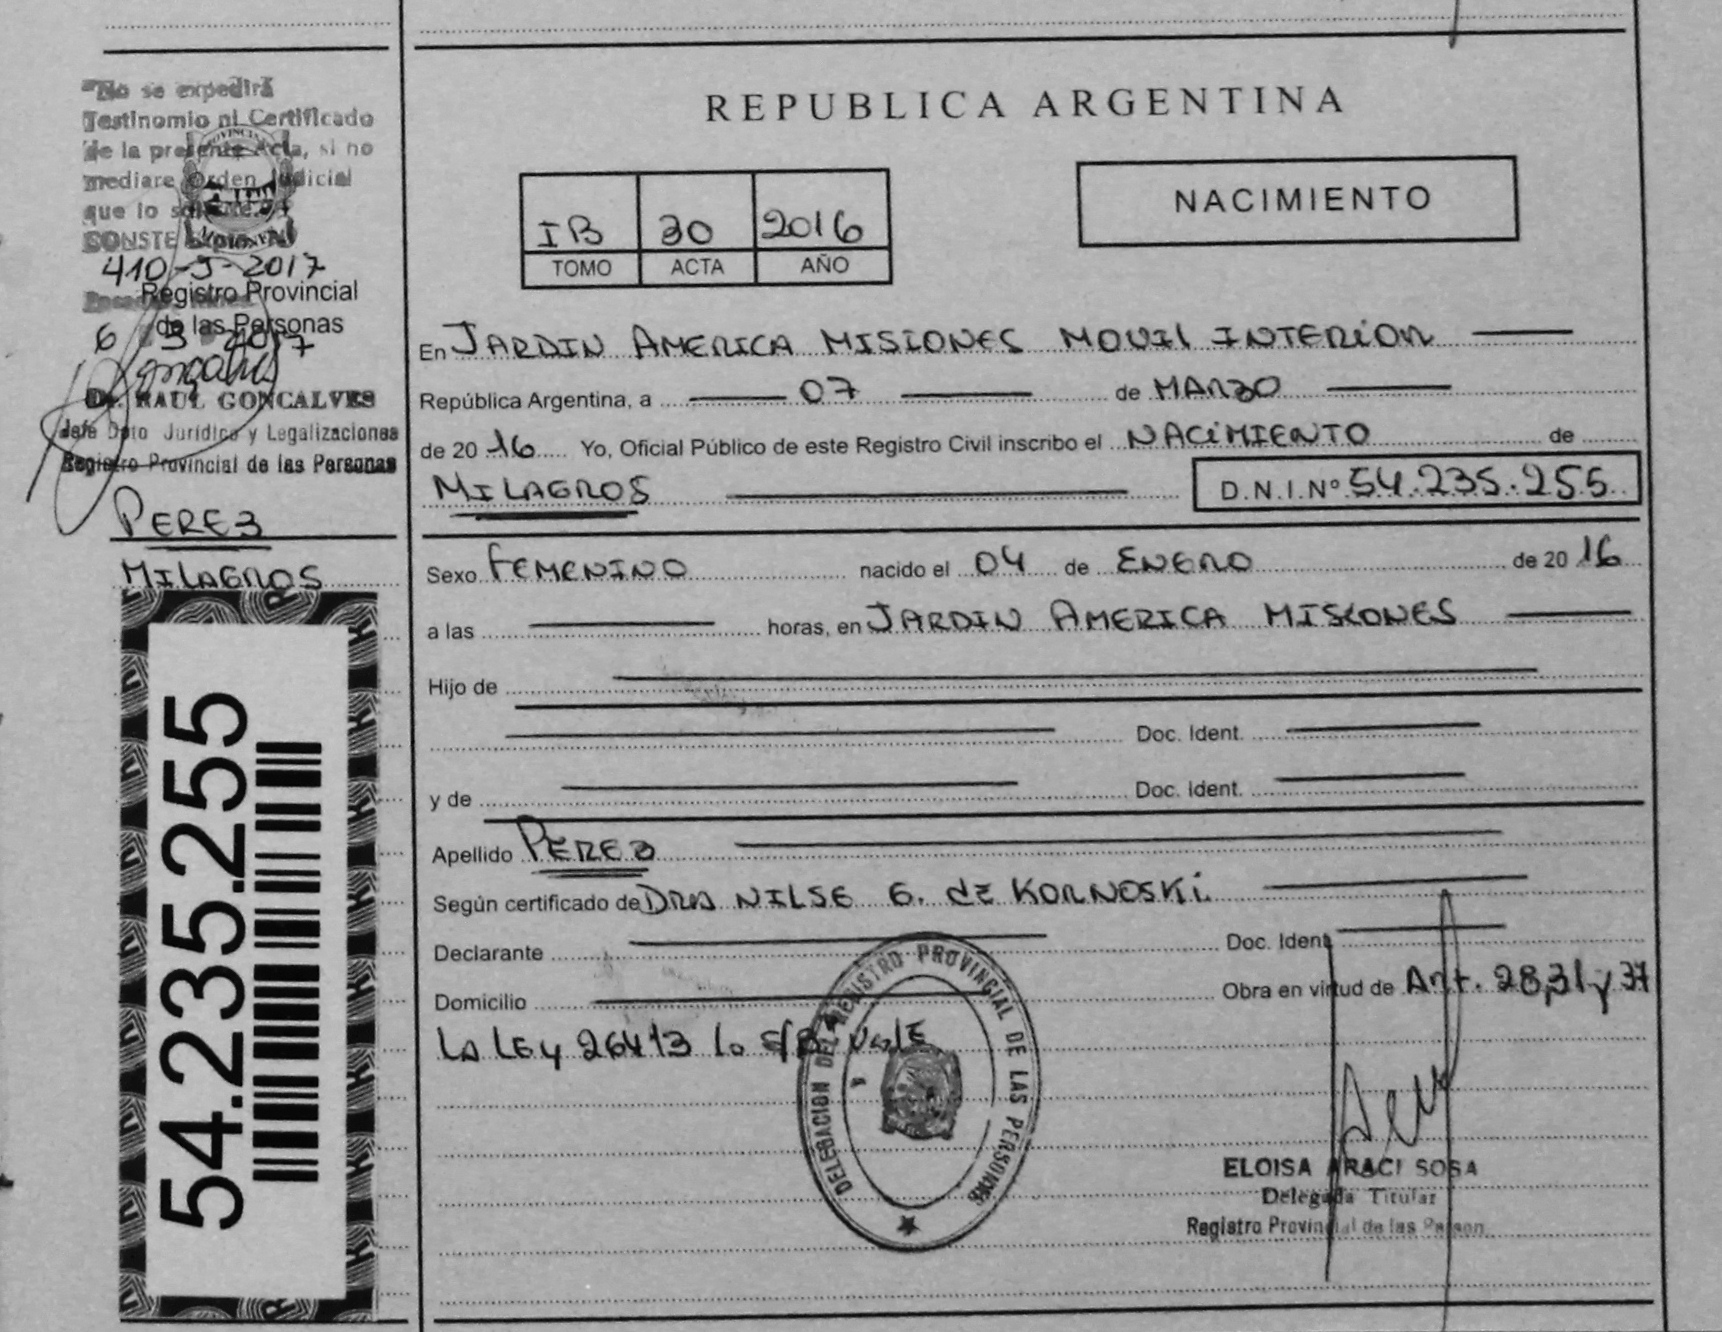 "No se expedirá
Testimonio ni Certificado
de la presente Acta, si no
mediare Orden Judicial
que lo solicite.
CONSTE Expte. Nº
410-J-2017
Registro Provincial
de las Personas
6 3 2017
Dr. RAUL GONCALVES
Jefe Dpto Jurídico y Legalizaciones
Registro Provincial de las Personas
PEREZ
MILAGROS
54.235.255
REPUBLICA ARGENTINA
NACIMIENTO
IB 30 2016
TOMO ACTA AÑO
En JARDIN AMERICA MISIONES MOVIL INTERIOR
República Argentina, a 07 de MARZO
de 20 16 Yo, Oficial Público de este Registro Civil inscribo el NACIMIENTO de
MILAGROS D.N.I.Nº 54.235.255
Sexo FEMENINO nacido el 04 de ENERO de 20 16
a las horas, en JARDIN AMERICA MISIONES
Hijo de
Doc. Ident.
y de Doc. Ident.
Apellido PEREZ
Según certificado de DRA NILSE G. de KORNOSKI.
Declarante Doc. Ident.
Domicilio Obra en virtud de Art. 28,31 y 37
LA LEY 26413 lo E/R VALE
DELEGACION DEL REGISTRO PROVINCIAL DE LAS PERSONAS
ELOISA ARACI SOSA
Delegada Titular
Registro Provincial de las Person